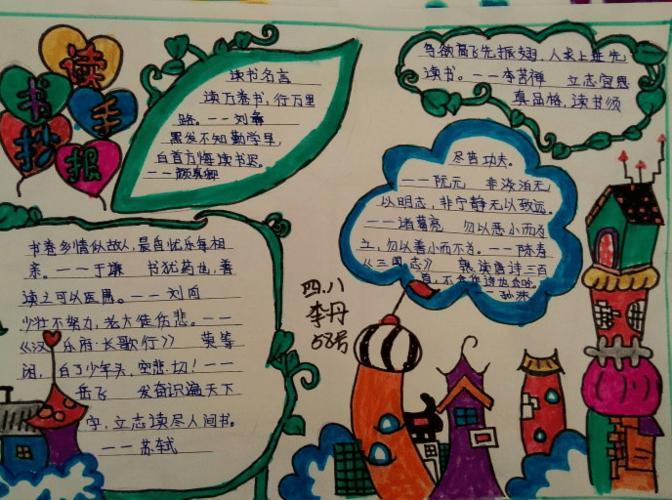 读书
手抄报
读书名言
读万卷书,行万里
路。——刘彝
黑发不知勤学早,
白首方悔读书迟。
——颜真卿
鸟欲高飞先振翅,人求上进先
读书。——李苦禅 立志宜思
真品格,读书须
尽苦功夫。
——阮元 非淡泊无
以明志,非宁静无以致远。
——诸葛亮 勿以恶小而为
之,勿以善小而不为。——陈寿
《三国志》 熟读唐诗三百
首,不会作诗也会吟。
——孙洙
书卷多情似故人,晨昏忧乐每相
亲。——于谦 书犹药也,善
读之可以医愚。——刘向
少壮不努力,老大徒伤悲。——
《汉乐府·长歌行》 莫等
闲,白了少年头,空悲切!——
岳飞 发奋识遍天下
字,立志读尽人间书。
——苏轼
四.八
李丹
58号